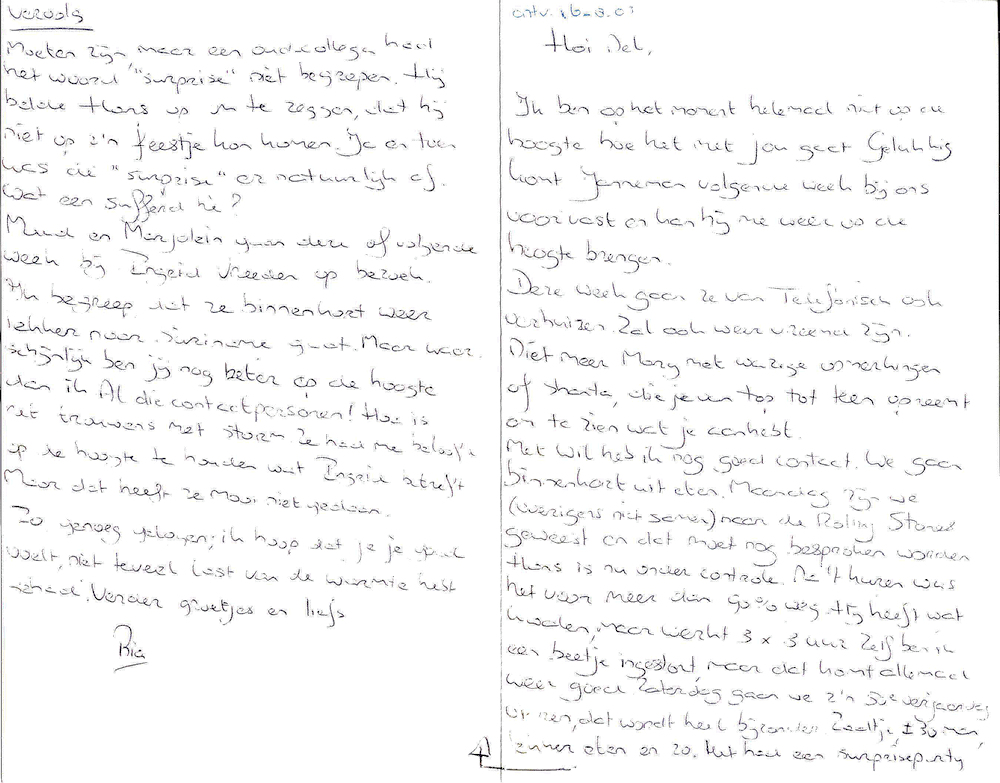 vervolg
Moeten zijn, maar een oud-collega had
het woord "surprise" niet begrepen. Hij
belde Hans op om te zeggen, dat hij
niet op z'n feestje kon komen. Ja en toen
was die "surprise" er natuurlijk af.
Wat een suffend hè?
Ruud en Marjolein gaan deze of volgende
week bij Ingrid Vreeden op bezoek.
Ik begreep dat ze binnenkort weer
lekker naar Suriname gaat. Maar waar-
schijnlijk ben jij nog beter op de hoogte
dan ik Al die contactpersonen! Hoe is
het trouwens met Storm. Ze had me beloofd
op de hoogte te houden wat Ingrid betreft
Maar dat heeft ze mooi niet gedaan.
Zo genoeg; ik hoop dat je je goed
voelt, niet teveel last van de warmte hebt
gehad. Verder groetjes en liefs
Ria
antw. 16-9-03
Hoi Del,
Ik ben op het moment helemaal niet op de
hoogte hoe het met jou gaat Gelukkig
komt Janneman volgende week bij ons
voor vast en kan hij me weer op de
hoogte brengen.
Deze week gaan ze van Telefonisch ook
verhuizen. Zal ook weer vreemd zijn.
Niet meer Mary met wazige opmerkingen
of Shanta, die je van top tot teen opneemt
om te zien wat je aanhebt.
Met Wil heb ik nog goed contact. We gaan
binnenkort uit eten. Maandag zijn we
(weliswaar niet samen) naar de Rolling Stones
geweest en dat moet nog besproken worden
Hans is nu onder controle. Na 't kuren was
het voor meer dan 90% weg. Hij heeft wat
kwalen, maar werkt 3 x 3 uur Zelf ben ik
een beetje ingestort, maar dat komt allemaal
weer goed Zaterdag gaan we z'n 50e verjaardag
vieren, dat wordt heel bijzonder Zaaltje, ± 30 man,
binnen eten en zo. Het had een surpriseparty
4